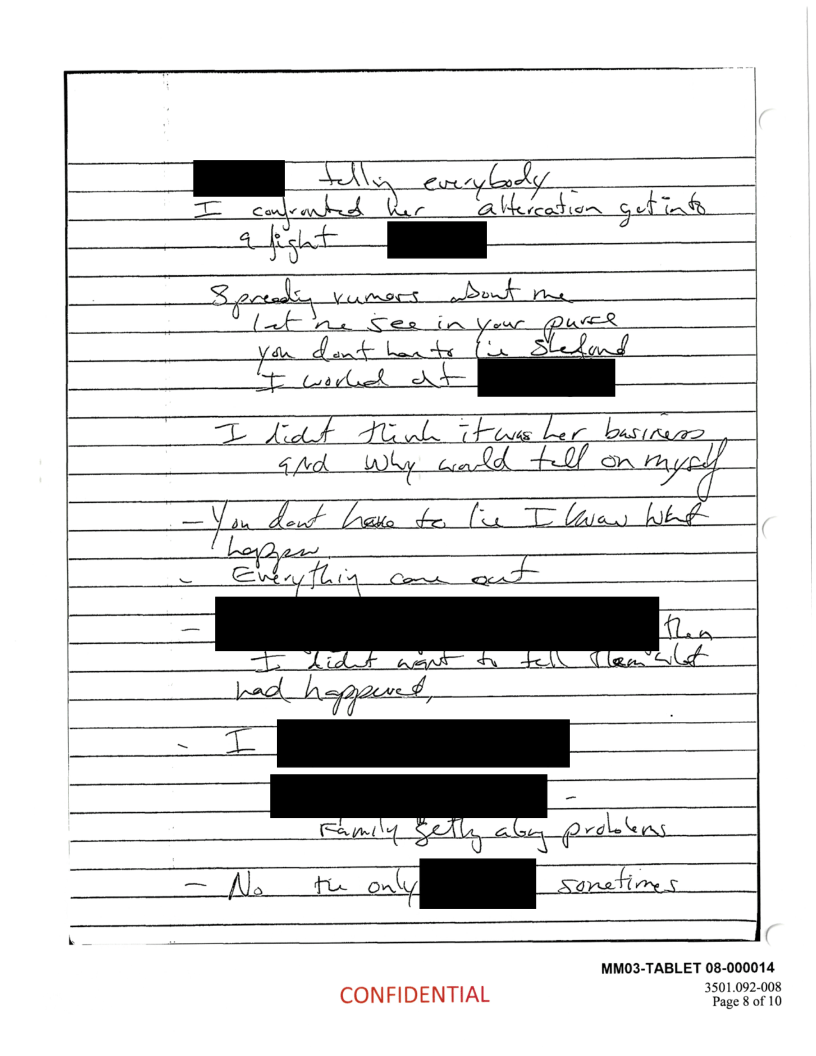 telling everybody
I confronted her altercation get into
a fight
Spreading rumors about me
let me see in your purse
you dont have to lie
I worked at
I didnt think it was her business
and why would tell on myself
- You dont have to lie I know what
happen
- Everything came out
- then
I didnt want to tell them what
had happened,
- I
-
Family getting problems
- No the only sometimes
MM03-TABLET 08-000014
3501.092-008
CONFIDENTIAL
Page 8 of 10